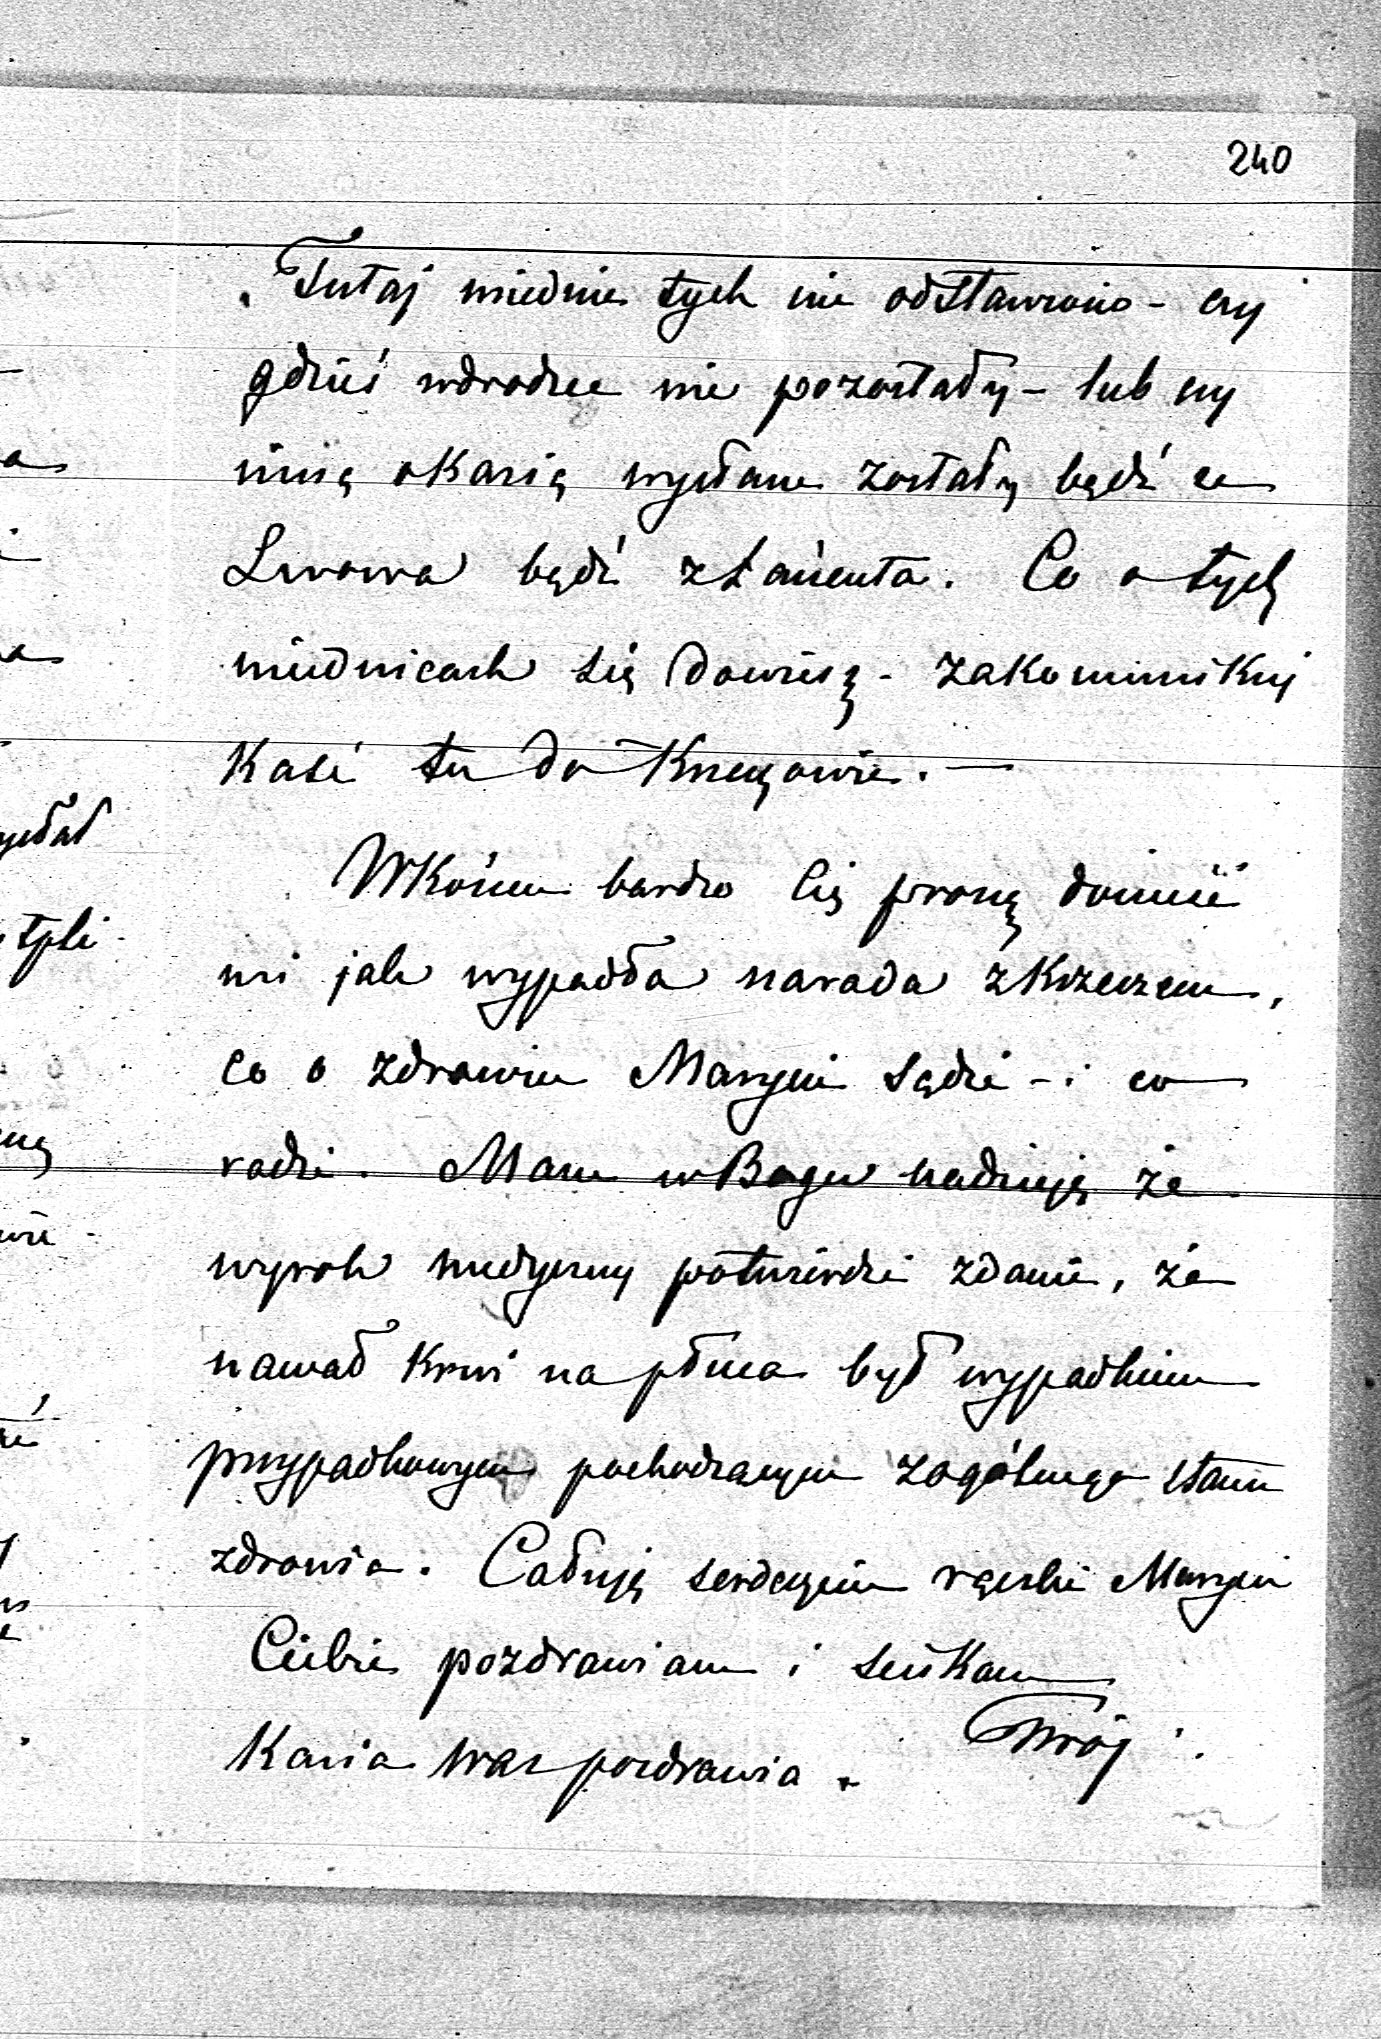 240
Tutaj miednic tych nie odstawiono - czy
gdzieś wdrodze nie pozostały - lub czy
inną okazią wysłane zostały bądź ze
Lwowa bądź z Łańcuta. Co o tych
miednicach się dowiesz - zakomunikuj
Kasi tu do Krzeszowic. -
Wkońcu bardzo Cię proszę donieść
mi jak wypadła narada z Korczem,
co o zdrowiu Maryni sądzi - i co
radzi. Mam w Bogu nadzieję że
wyrok medyczny potwierdzi zdanie, że
nawał krwi na płuca był wypadkiem
przypadkowym pochodzącym z ogólnego stanu
zdrowia. Całuję serdecznie rączki Maryni
Ciebie pozdrawiam i ściskam
Twój
Kasia Was pozdrawia.